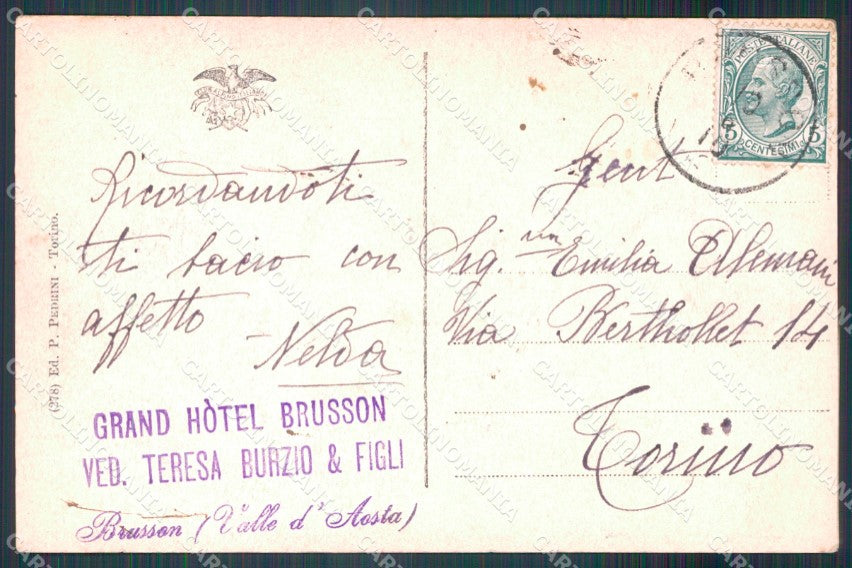 Ricordandoti
ti bacio con
affetto
Nelda
GRAND HÒTEL BRUSSON
VED. TERESA BURZIO & FIGLI
Brusson (Valle d'Aosta)
(278) Ed. P. PEDRINI - TORINO.
POSTE ITALIANE
5 5
CENTESIMI
Gent
Sig.na Emilia Allemani
Via Berthollet 14
Torino
CARTOLINOMANIA